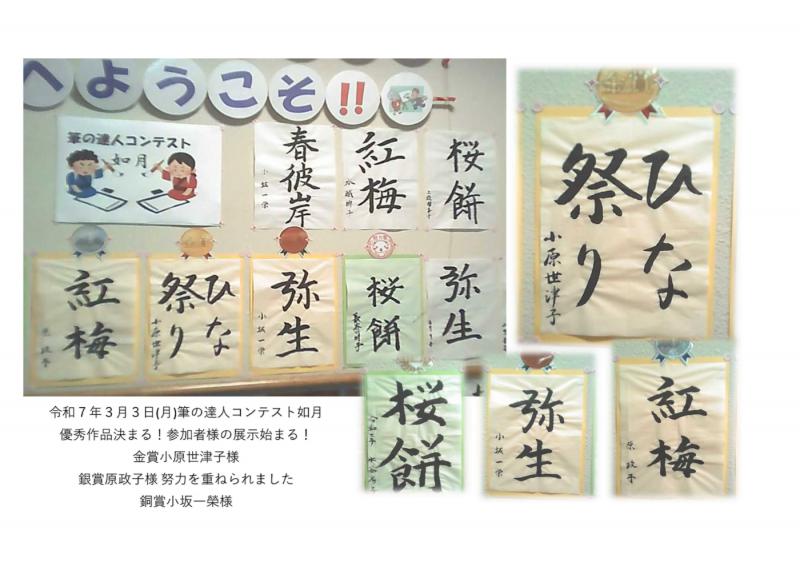 へようこそ!!
筆の達人コンテスト
如月
春彼岸
小坂一栄
紅梅
桜餅
紅梅
原政子
ひな
祭り
小原世津子
弥生
小坂一栄
桜餅
弥生
ひな
祭り
小原世津子
桜餅
弥生
小坂一栄
紅梅
原政子
令和７年３月３日(月)筆の達人コンテスト如月
優秀作品決まる！参加者様の展示始まる！
金賞小原世津子様
銀賞原政子様 努力を重ねられました
銅賞小坂一榮様